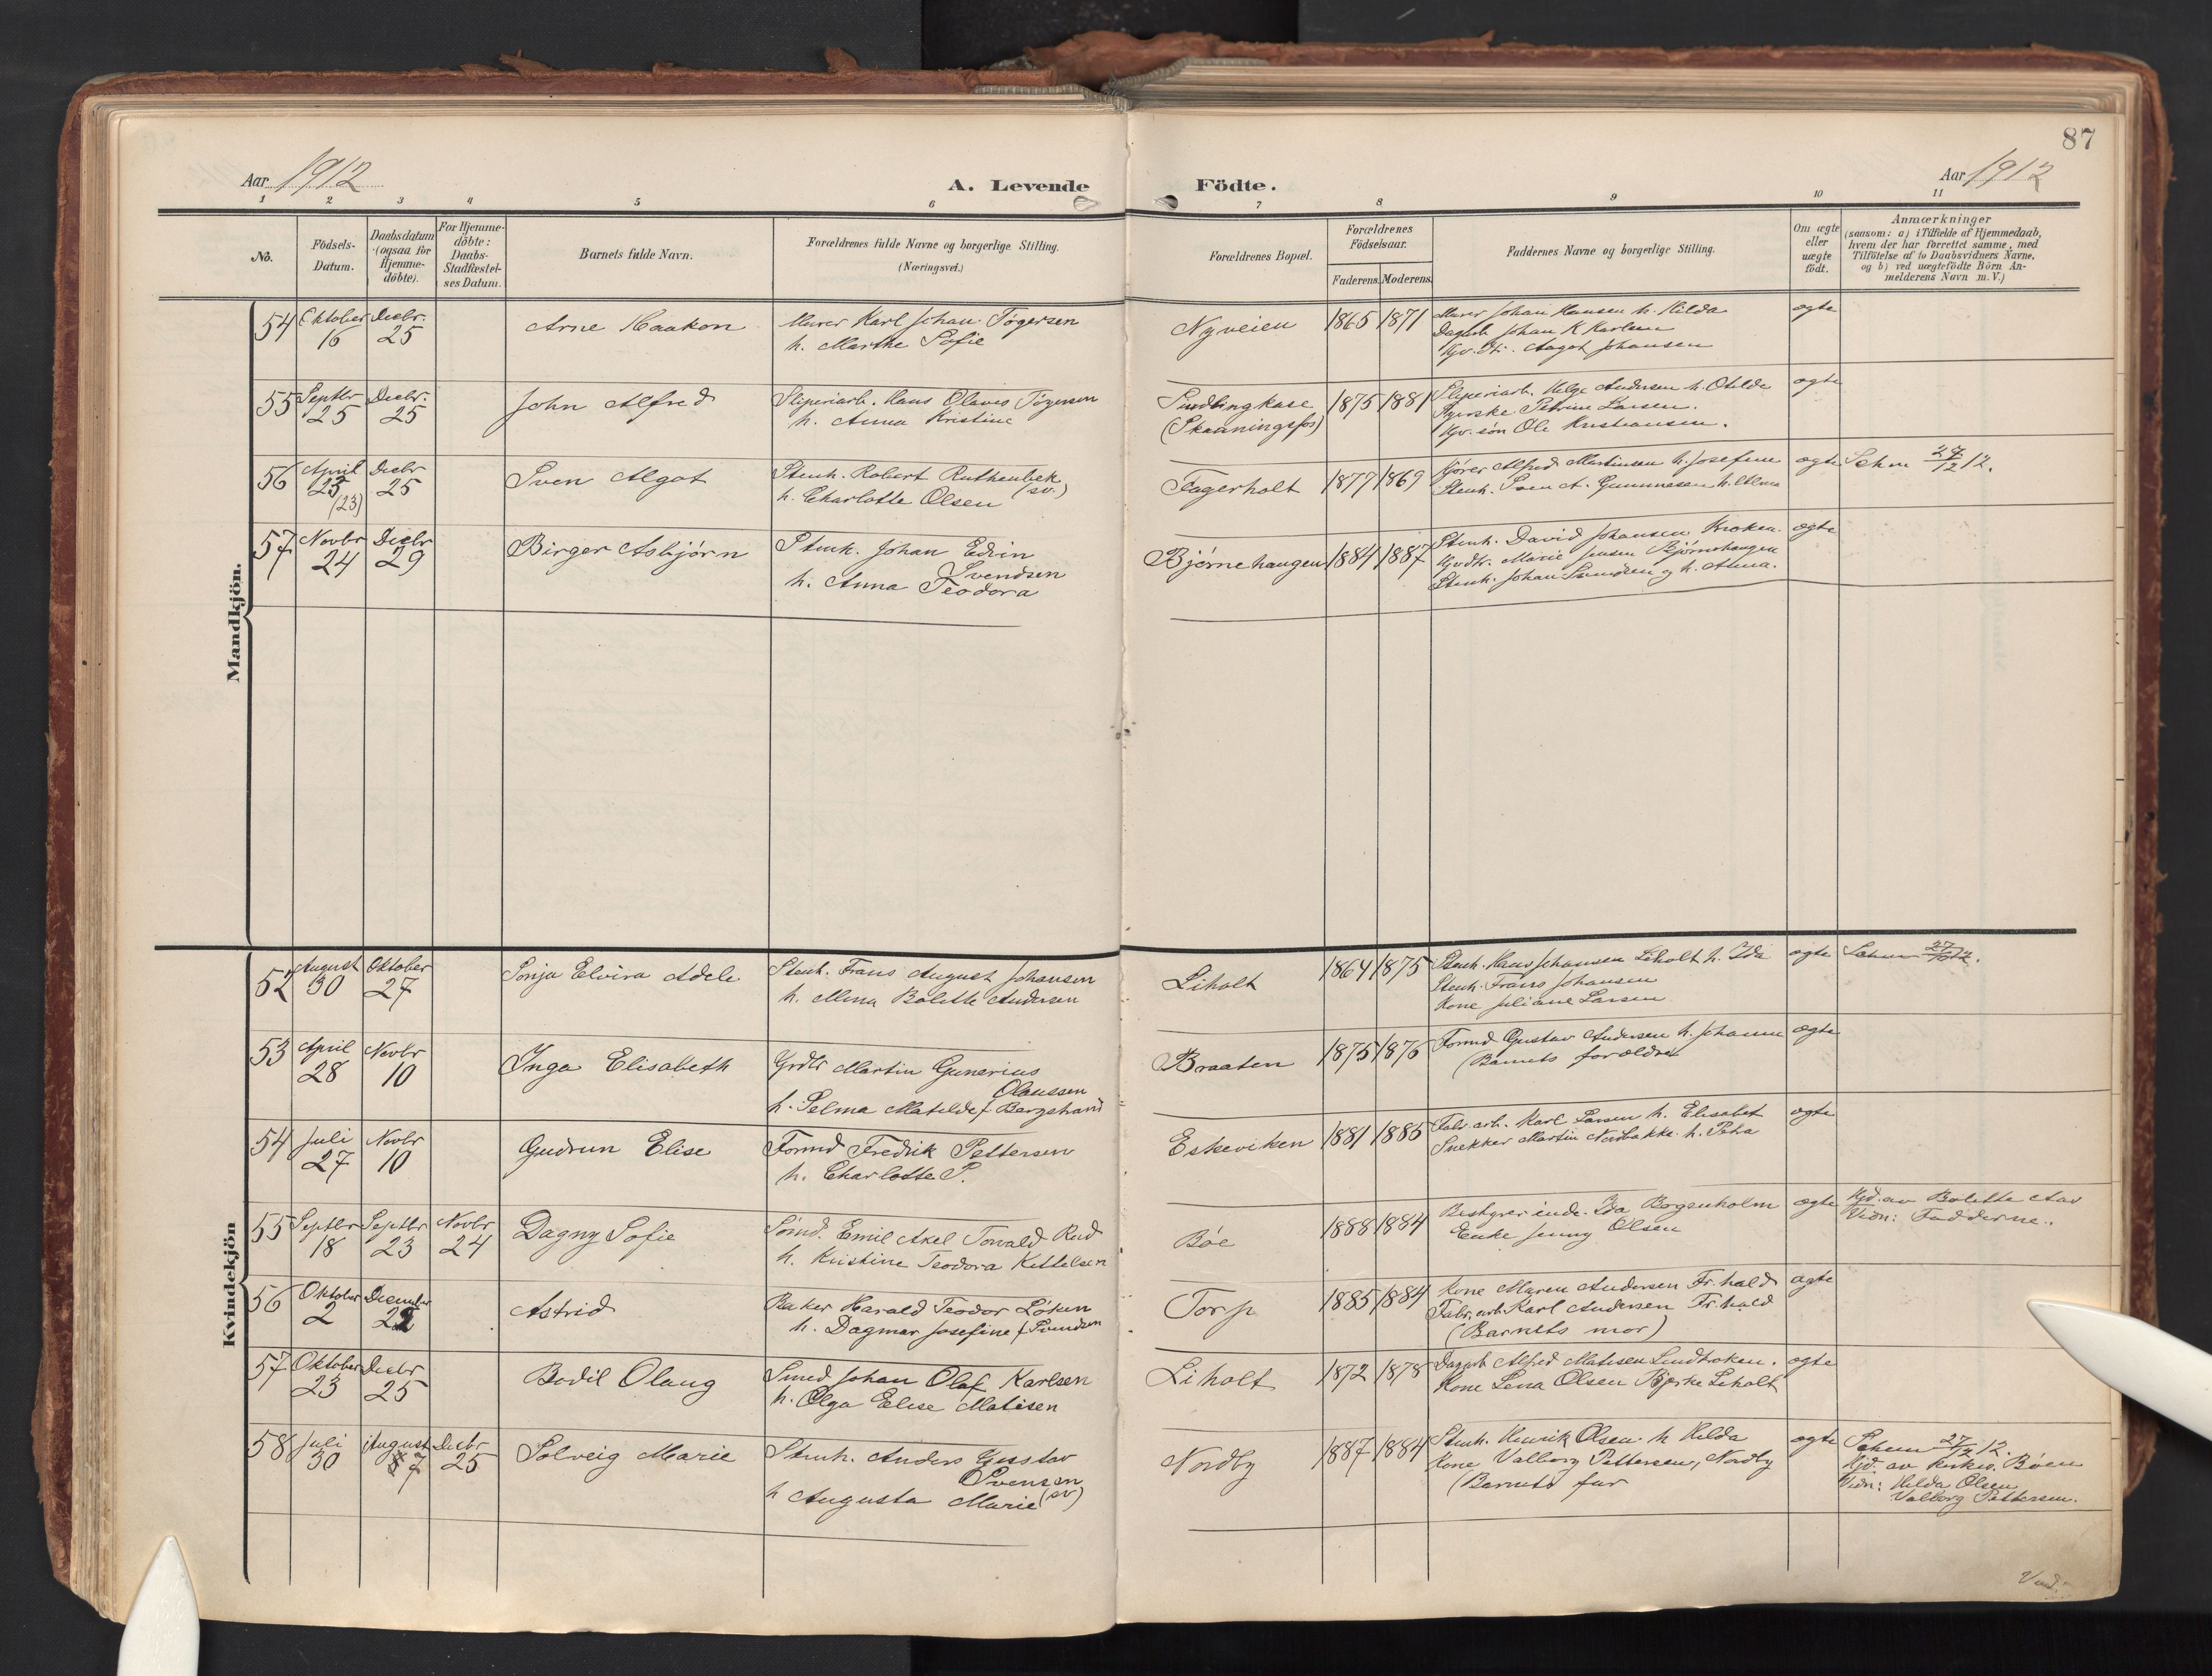 87
Aar 1912
A. Levende Födte.
Aar 1912
1 2 3 4 5 6 7 8 9 10 11
No.
Födsels-
Datum.
Daabsdatum
(ogsaa for
Hjemme-
döbte).
For Hjemme-
döbte:
Daabs-
Stadfæstel-
ses Datum.
Barnets fulde Navn.
Forældrenes fulde Navne og borgerlige Stilling.
(Næringsvei.)
Forældrenes Bopæl.
Forældrenes
Födselsaar.
Faderens. Moderens.
Faddernes Navne og borgerlige Stilling.
Om ægte
eller
uægte
födt.
Anmærkninger
(saasom: a) i Tilfælde af Hjemmedaab,
hvem der har forrettet samme, med
Tilföielse af to Daabsvidners Navne,
og b) ved uægtefödte Börn An-
melderens Navn m. V.)
Mandkjön.
54 Oktober 16 Decbr. 25 Arne Haakon
Murer Karl Johan Tøgersen
h. Marthe Sofie
Nyveien 1865 1871
Murer Johan Hansen h. Hilda
Dagarb. Johan K Karlsen
Ugv. dtr. Aagot Johansen
ægte
55 Septbr 25 Decbr. 25 John Alfred
Sliperiarb. Hans Olaves Tørgersen
h. Anna Kristine
(Skaaningsfos) 1875 1881
Sliperiarb. Helge Andersen h. Otilde
Petrine Larsen.
Ugv. søn Ole Kristiansen.
ægte
56 April 23 (23) Decbr 25 Sven Algot
Stenh. Robert Ruthenbek
(sv.)
h. Charlotte Olsen
Fagerholt 1877 1869
Kjører Alfred Martinsen h. Josefine
Stenh. Sven A. Gummesen h. Alma
ægte
27/12 12.
57 Novbr 24 Decbr 29 Birger Asbjørn
Stenh. Johan Edvin
Svendsen
h. Anna Teodora
Bjørnehaugen 1884 1887
Stenh. David Johansen Kroken
Ugv dtr. Marie Jensen Bjørnehaugen
Stenh. Johan Svendsen og h. Anna.
ægte
Kvindekjön
52 August 30 Oktober 27 Sonja Elvira Adele
Stenh. Frans August Johansen
h. Mina Bolette Andersen
Liholt 1864 1875
Stenh. Hans Johansen Liholt h. Ida
Stenh. Frans Johansen
Kone Juliane Larsen
ægte
53 April 28 Novbr 10 Inga Elisabeth
Grdbr Martin Gunerius
Olaussen
h. Selma Matilde f. Bergstrand
Braaten 1875 1876
Formd Gustav Andersen h. Johanne
(Barnets forældre
ægte
54 Juli 27 Novbr 10 Gudrun Elise
Formd Fredrik Pettersen
h. Charlotte P.
Eskeviken 1881 1885
Fabr. arb. Karl Larsen h. Elisabet
Snekker Martin Nordbakke h. Petra
ægte
55 Septbr 18 Septbr 23 Novbr 24 Dagny Sofie
Sømd. Emil Axel Torvald Rud
h. Kristine Teodora Kittelsen
Bøe 1888 1884
Bestyrerinde Ida Bogenholm
Enke Jenny Olsen
ægte
Hjd. av Bolette Aas
Vidn: Fadderne.
56 Oktober 2 December 22 Astrid
Baker Harald Teodor Løken
h. Dagmar Josefine f. Svendsen
Torp 1885 1884
Kone Maren Andersen Fr.hald
Fabr. arb. Karl Andersen Fr.hald
(Barnets mor)
ægte
57 Oktober 23 Decbr 25 Bodil Olaug
Smed Johan Olaf Karlsen
h. Olga Elise Matisen
Liholt 1872 1878
Dagarb Alfred Matisen
Kone Lena Olsen Bjerke Liholt
ægte
58 Juli 30 August 7 Decbr 25 Solveig Marie
Stenh. Anders Gustav
Svensen
h Augusta Marie (sv)
Nordby 1887 1884
Stenh. Henrik Olsen h Hilda
Kone Valborg Pettersen, Nordby
(Barnets far
ægte
27/12 12.
Hjd. av kirkes. Bøen
Vidn: Hilda Olsen
Valborg Pettersen.
Vend.